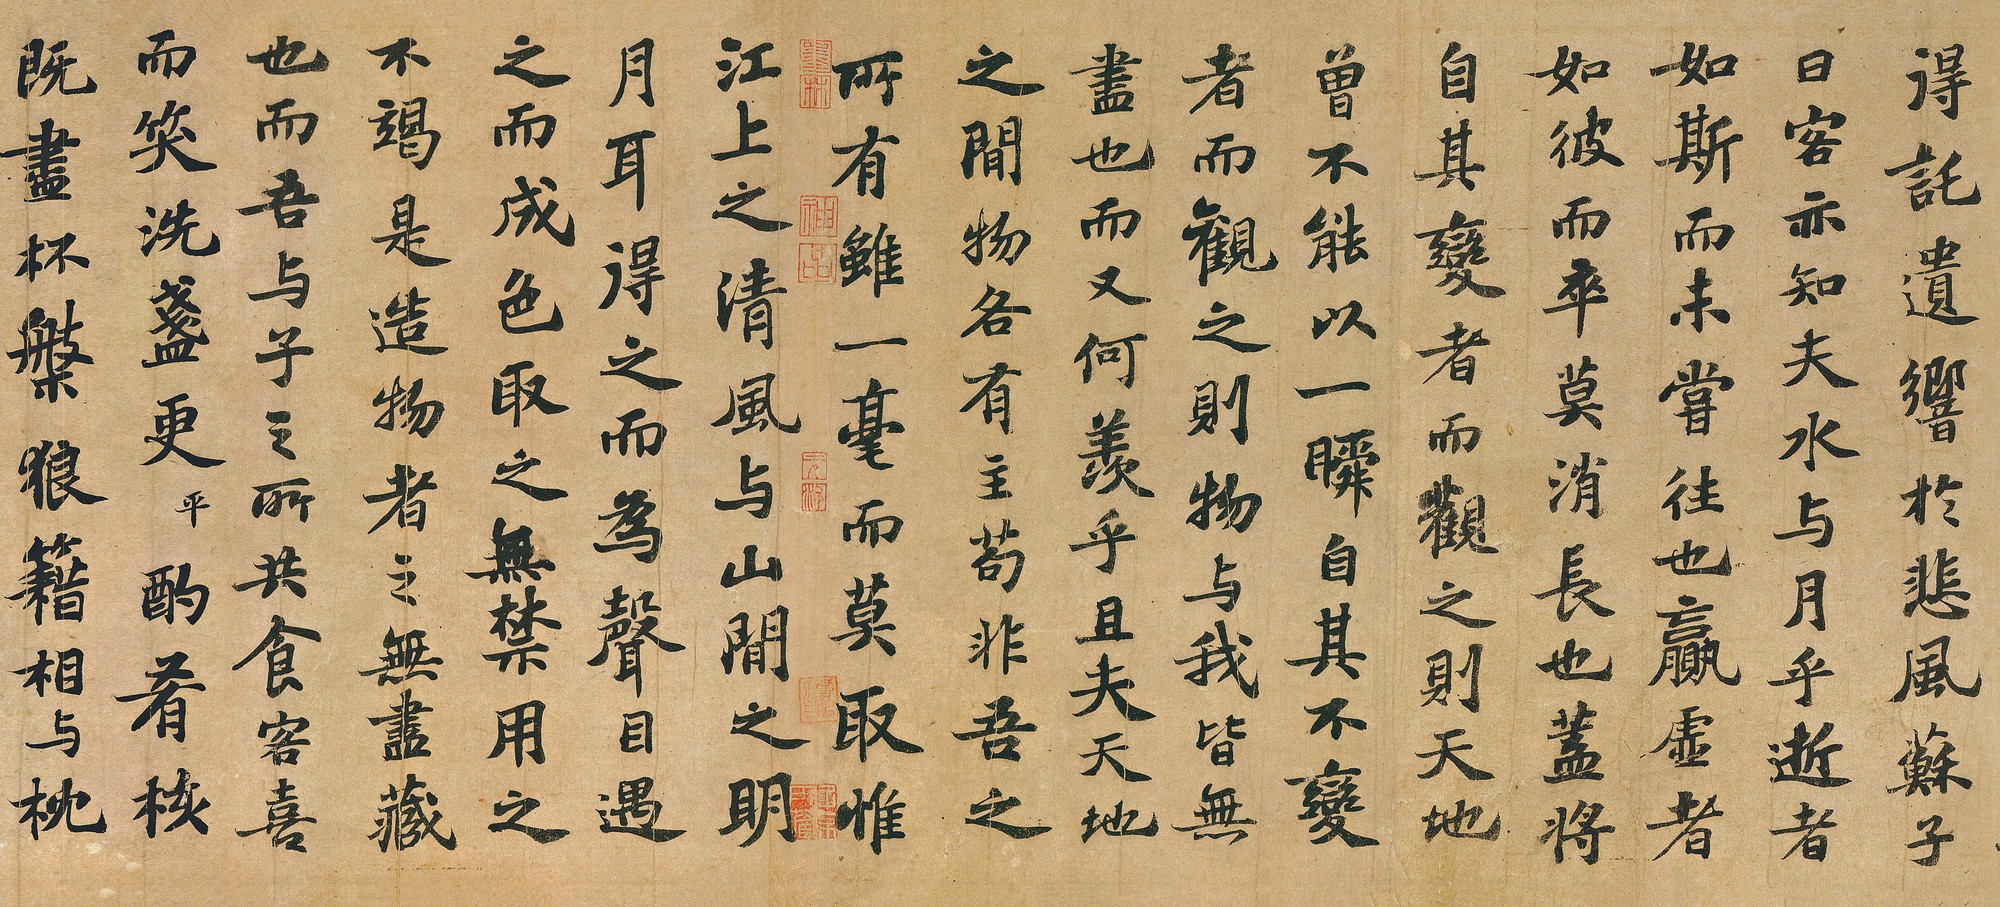 得託遺響於悲風蘇子
曰客亦知夫水与月乎逝者
如斯而未嘗往也贏虛者
如彼而卒莫消長也蓋將
自其變者而觀之則天地
曾不能以一瞬自其不變
者而觀之則物与我皆無
盡也而又何羨乎且夫天地
之間物各有主苟非吾之
所有雖一毫而莫取惟
江上之清風与山間之明
月耳得之而為聲目遇
之而成色取之無禁用之
不竭是造物者之無盡藏
也而吾与子之所共食客喜
而笑洗盞更平酌肴核
既盡杯槃狼籍相与枕